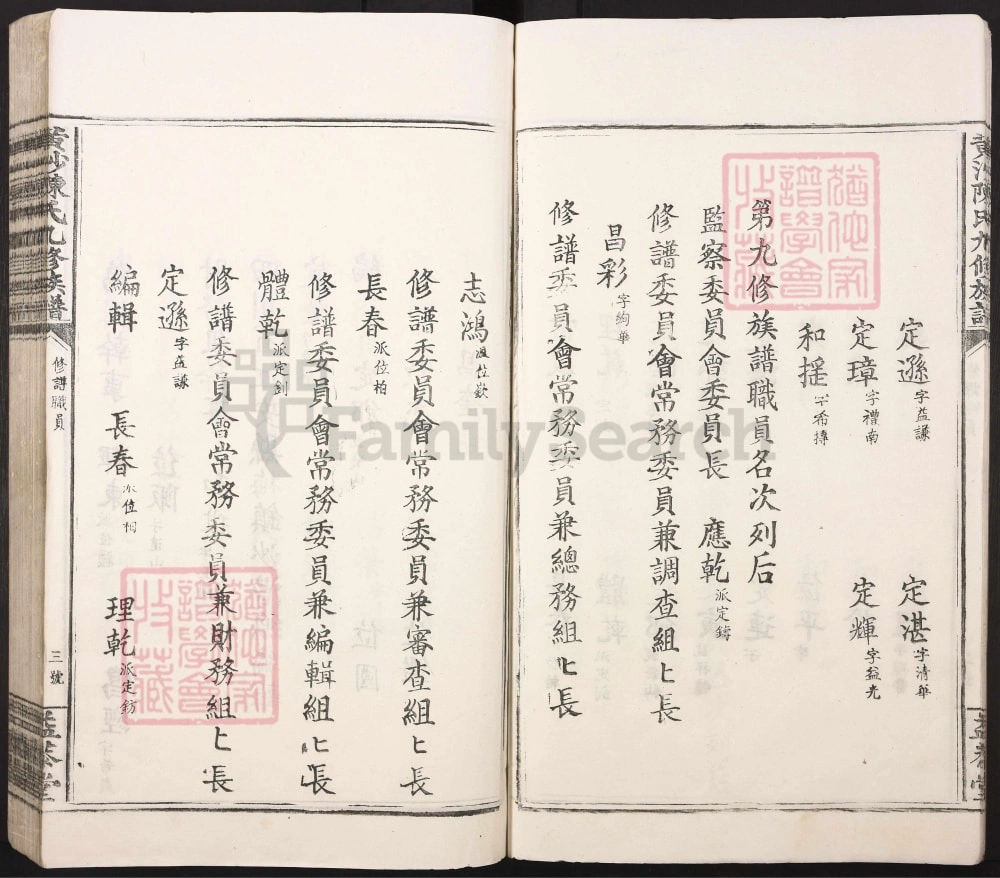 黃沙陳氏九修族譜
定遜字益謙 定湛字清華
定璋字禮南 定輝字益光
和搓字希摶
第九修族譜職員名次列后
監察委員會委員長 應乾派定鑄
修譜委員會常務委員兼調查組匕長
昌彩字絢華
修譜委員會常務委員兼總務組匕長
志鴻派位欽
修譜委員會常務委員兼審查組匕長
長春派位柏
修譜委員會常務委員兼編輯組匕長
體乾派定釗
修譜委員會常務委員兼財務組匕長
定遜字益謙
編輯 長春派位柏 理乾派定鈁
黃沙陳氏九修族譜
修譜職員
三號
益恭堂
益恭堂
猶他家譜學會收藏
猶他家譜學會收藏
FamilySearch